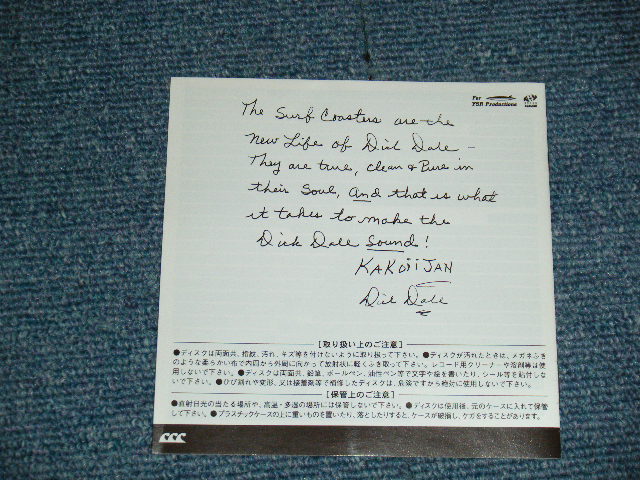 For
YSR Productions
The Surf Coasters are the
New Life of Dick Dale -
They are true, clean & Pure in
their Soul, And that is what
it takes to make the
Dick Dale Sound!
KAKOJI JAN
Dick Dale
[取り扱い上のご注意]
●ディスクは両面共、指紋、汚れ、キズ等を付けないように取り扱って下さい。●ディスクが汚れたときは、メガネふき
のような柔らかい布で内周から外周に向かって放射状に軽くふき取って下さい。レコード用クリーナーや溶剤等は使
用しないで下さい。●ディスクは両面共、鉛筆、ボールペン、油性ペン等で文字や絵を書いたり、シール等を貼付しな
いで下さい。●ひび割れや変形、又は接着剤等で補修したディスクは、危険ですから絶対に使用しないで下さい。
[保管上のご注意]
●直射日光の当たる場所や、高温・多湿の場所には保管しないで下さい。●ディスクは使用後、元のケースに入れて保管
して下さい。●プラスチックケースの上に重いものを置いたり、落としたりすると、ケースが破損し、ケガをすることがあります。
CCC